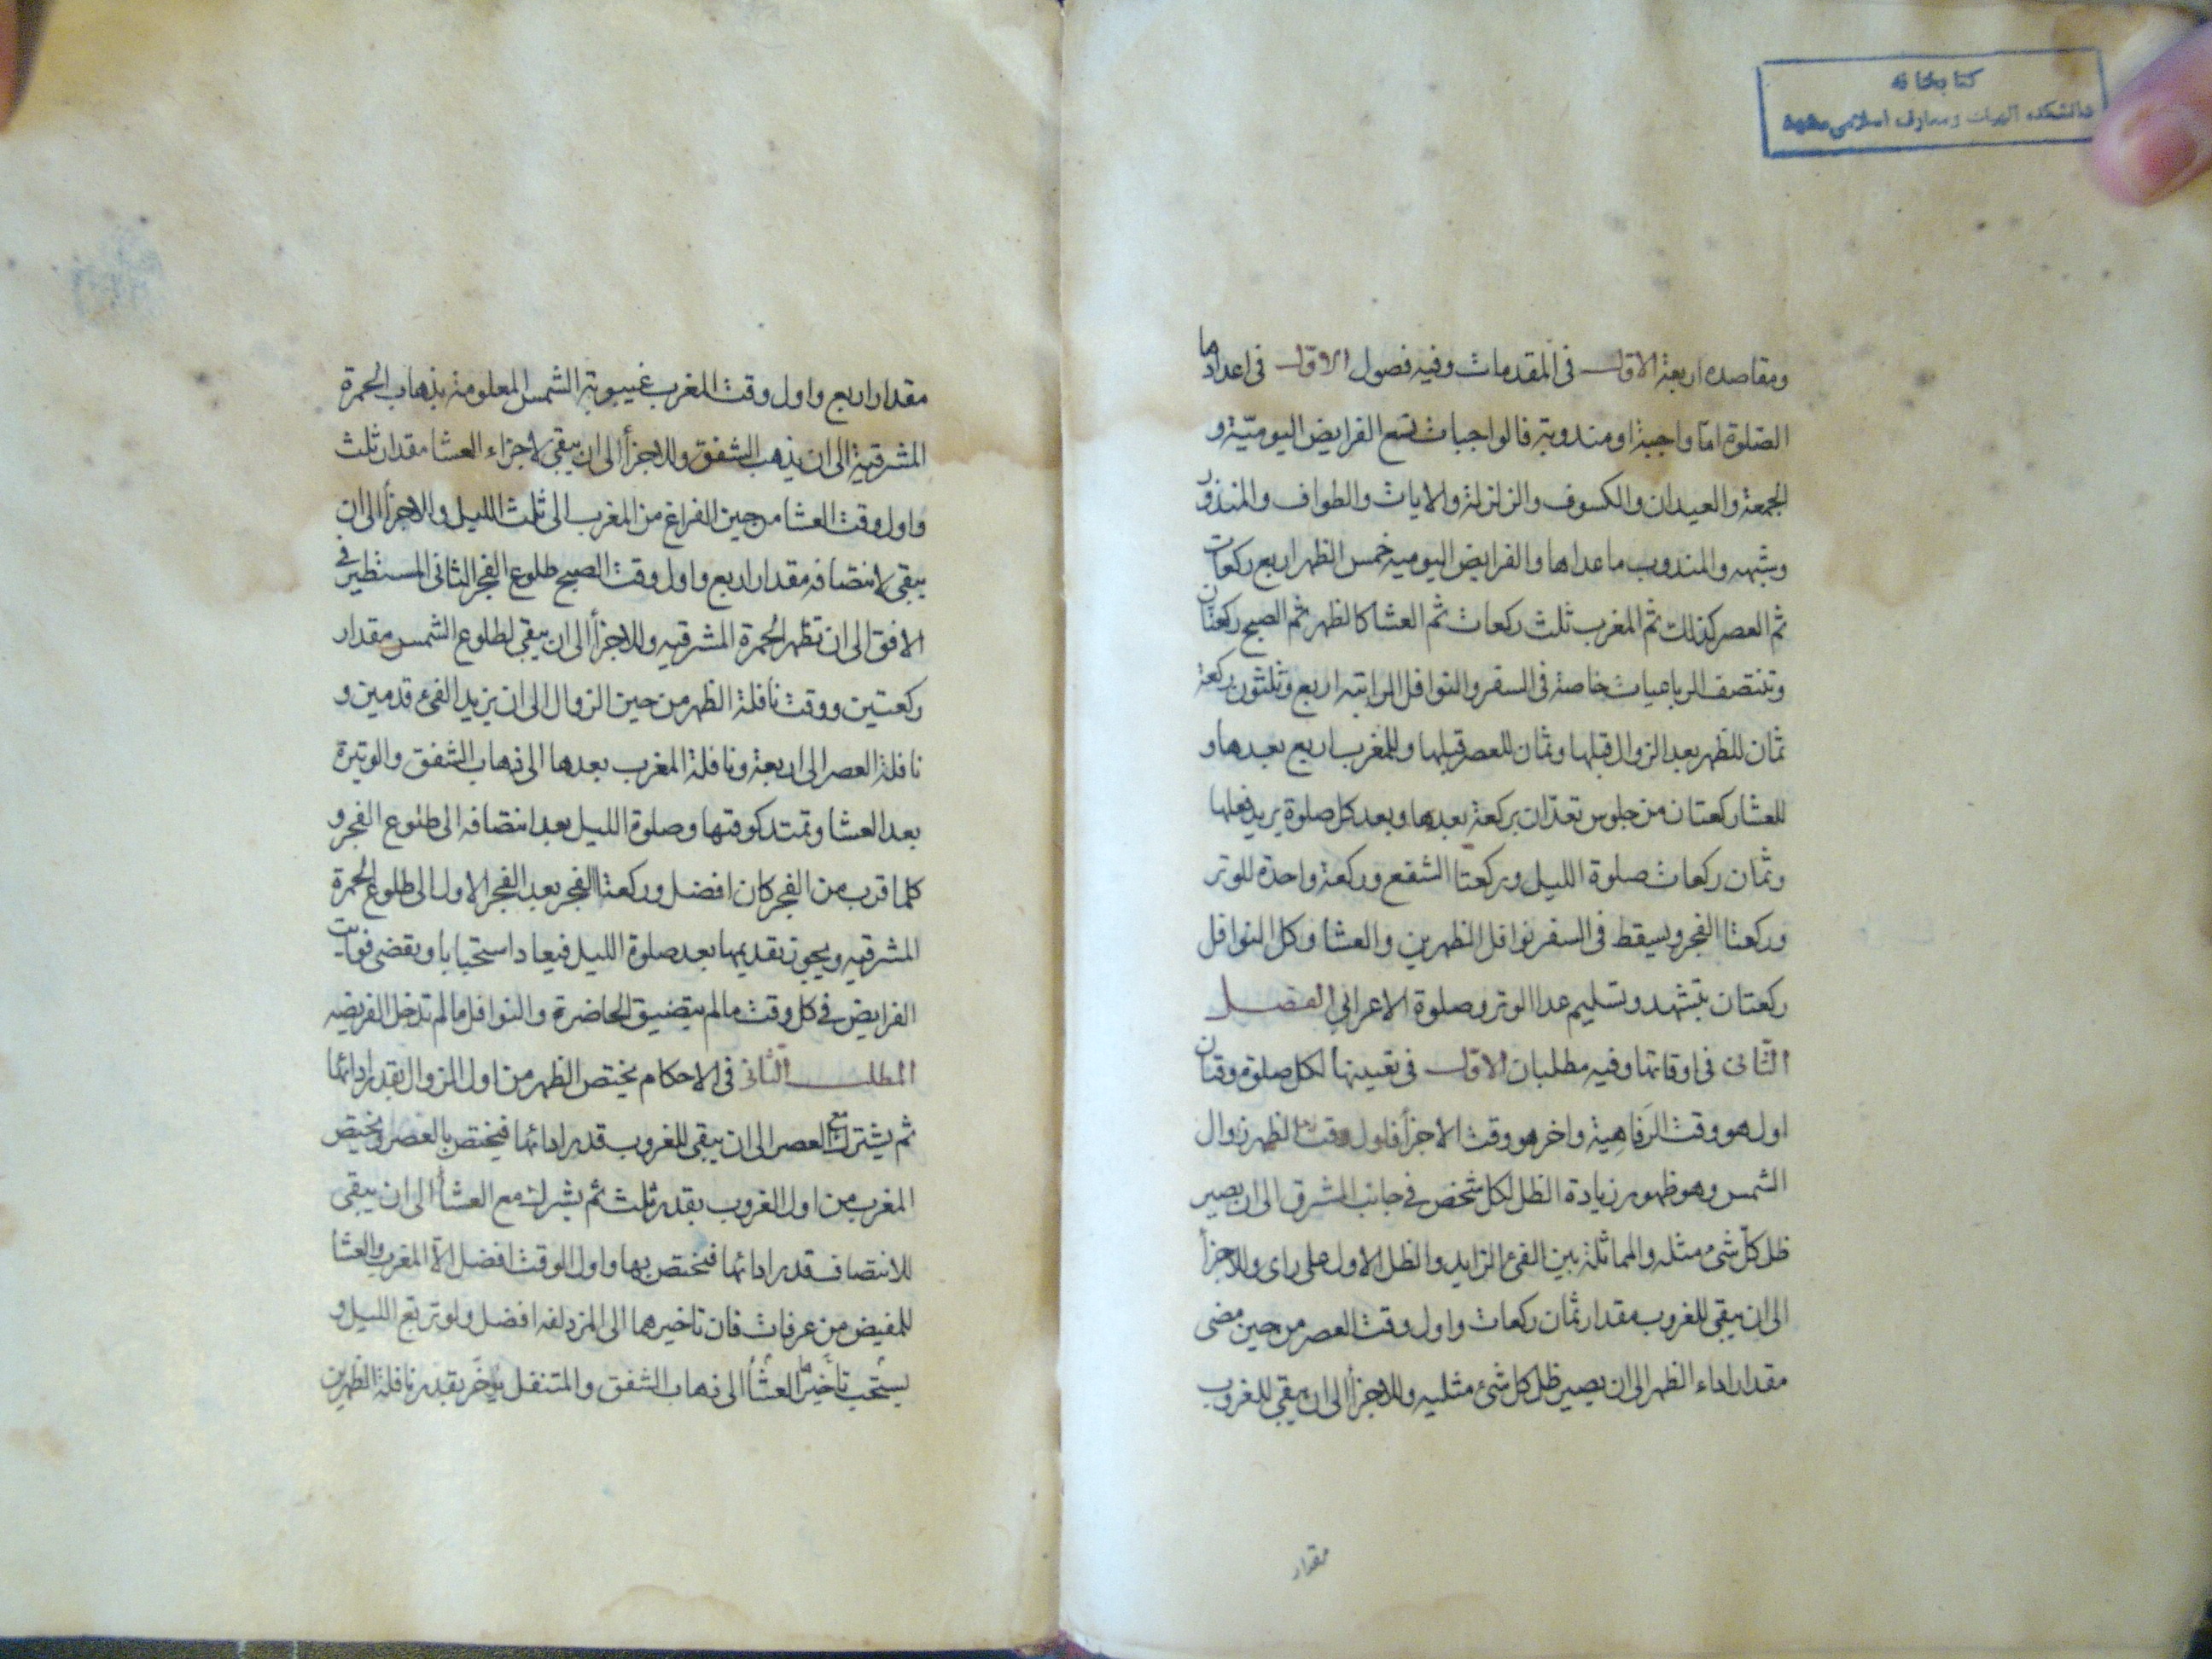 كتابخانه
دانشكده الهيات ومعارف اسلامى مشهد
ومقاصده اربعة الاول فى المقدمات وفيه فصول الاول فى اعدادها
الصلوة اما واجبة او مندوبة فالواجبات تسع الفرايض اليوميّة و
الجمعة والعيدان والكسوف والزلزلة والايات والطواف والمنذور
وشبهه والمندوب ماعداها والفرايض اليوميه خمس الظهر اربع ركعات
ثم العصر كذلك ثم المغرب ثلث ركعات ثم العشا كالظهر ثم الصبح ركعتان
وتنتصف الرباعيات خاصة فى السفر والنوافل الراتبه اربع وثلثون ركعة
ثمان للظهر بعد الزوال قبلها وثمان للعصر قبلها وللمغرب اربع بعدها و
للعشا ركعتان من جلوس تعدّان بركعة بعدها وبعد كل صلوة يريد فعلها
وثمان ركعات صلوة الليل وركعتا الشفع وركعة واحدة للوتر
وركعتا الفجر ويسقط فى السفر نوافل الظهرين والعشا وكل النوافل
ركعتان بتشهد وتسليم عدا الوتر وصلوة الاعرابي الفصل
الثانى فى اوقاتها وفيه مطلبان الاول فى تعيينها لكل صلوة وقتان
اول هو وقت الرَفاهِية واخر هو وقت الاجزأ فاول وقت الظهر زوال
الشمس وهو ظهور زيادة الظل لكل شخص في جانب المشرق الى ان يصير
ظل كلّ شئ مثله والمماثلة بين الفئ الزايد والظل الاول على راى وللاجزأ
الى ان يبقى للغروب مقدار ثمان ركعات واول وقت العصر من حين مضى
مقدار اداء الظهر الى ان يصير ظل كل شئ مثليه وللاجزأ الى ان يبقى للغروب
مقدار
مقدار اربع واول وقت المغرب غيبوبة الشمس المعلومة بذهاب الحمرة
المشرقية الى ان يذهب الشفق وللاجزأ الى ان يبقى لاجزاء العشا مقدار ثلث
واول وقت العشا من حين الفراغ من المغرب الى ثلث الليل والاجزأ الى ان
يبقى لانتصافه مقدار اربع واول وقت الصبح طلوع الفجر الثانى المستطير في
الافق الى ان تظهر الحمرة المشرقيه وللاجزأ الى ان يبقى لطلوع الشمس مقدار
ركعتين ووقت نافلة الظهر من حين الزوال الى ان يزيد الفئ قدمين و
نافلة العصر الى اربعة ونافلة المغرب بعدها الى ذهاب الشفق والوتيرة
بعد العشا وتمتد كوقتها وصلوة الليل بعد انتصافه الى طلوع الفجر و
كلما قرب من الفجر كان افضل وركعتا الفجر بعد الفجر الاول الى طلوع الحمرة
المشرقيه ويجوز تقديمها بعد صلوة الليل فيعاد استحبابا ويقضى فوايت
الفرايض في كل وقت مالم يتضيق الحاضرة والنوافل مالم تدخل الفريضه
المطلب الثانى فى الاحكام يختص الظهر من اول الزوال بقدر ادائها
ثم يشترك مع العصر الى ان يبقى للغروب قدر ادائها فيختص بالعصر ويختص
المغرب من اول الغروب بقدر ثلث ثم يشرك مع العشأ الى ان يبقى
للانتصاف قدر ادائها فيختص بها واول الوقت افضل الاّ المغرب والعشا
للمفيض من عرفات فان تاخيرهما الى المزدلفه افضل ولو تربع الليل و
يستحب تأخير العشأ الى ذهاب الشفق والمتنفل يؤخّر بقدر نافلة الظهرين